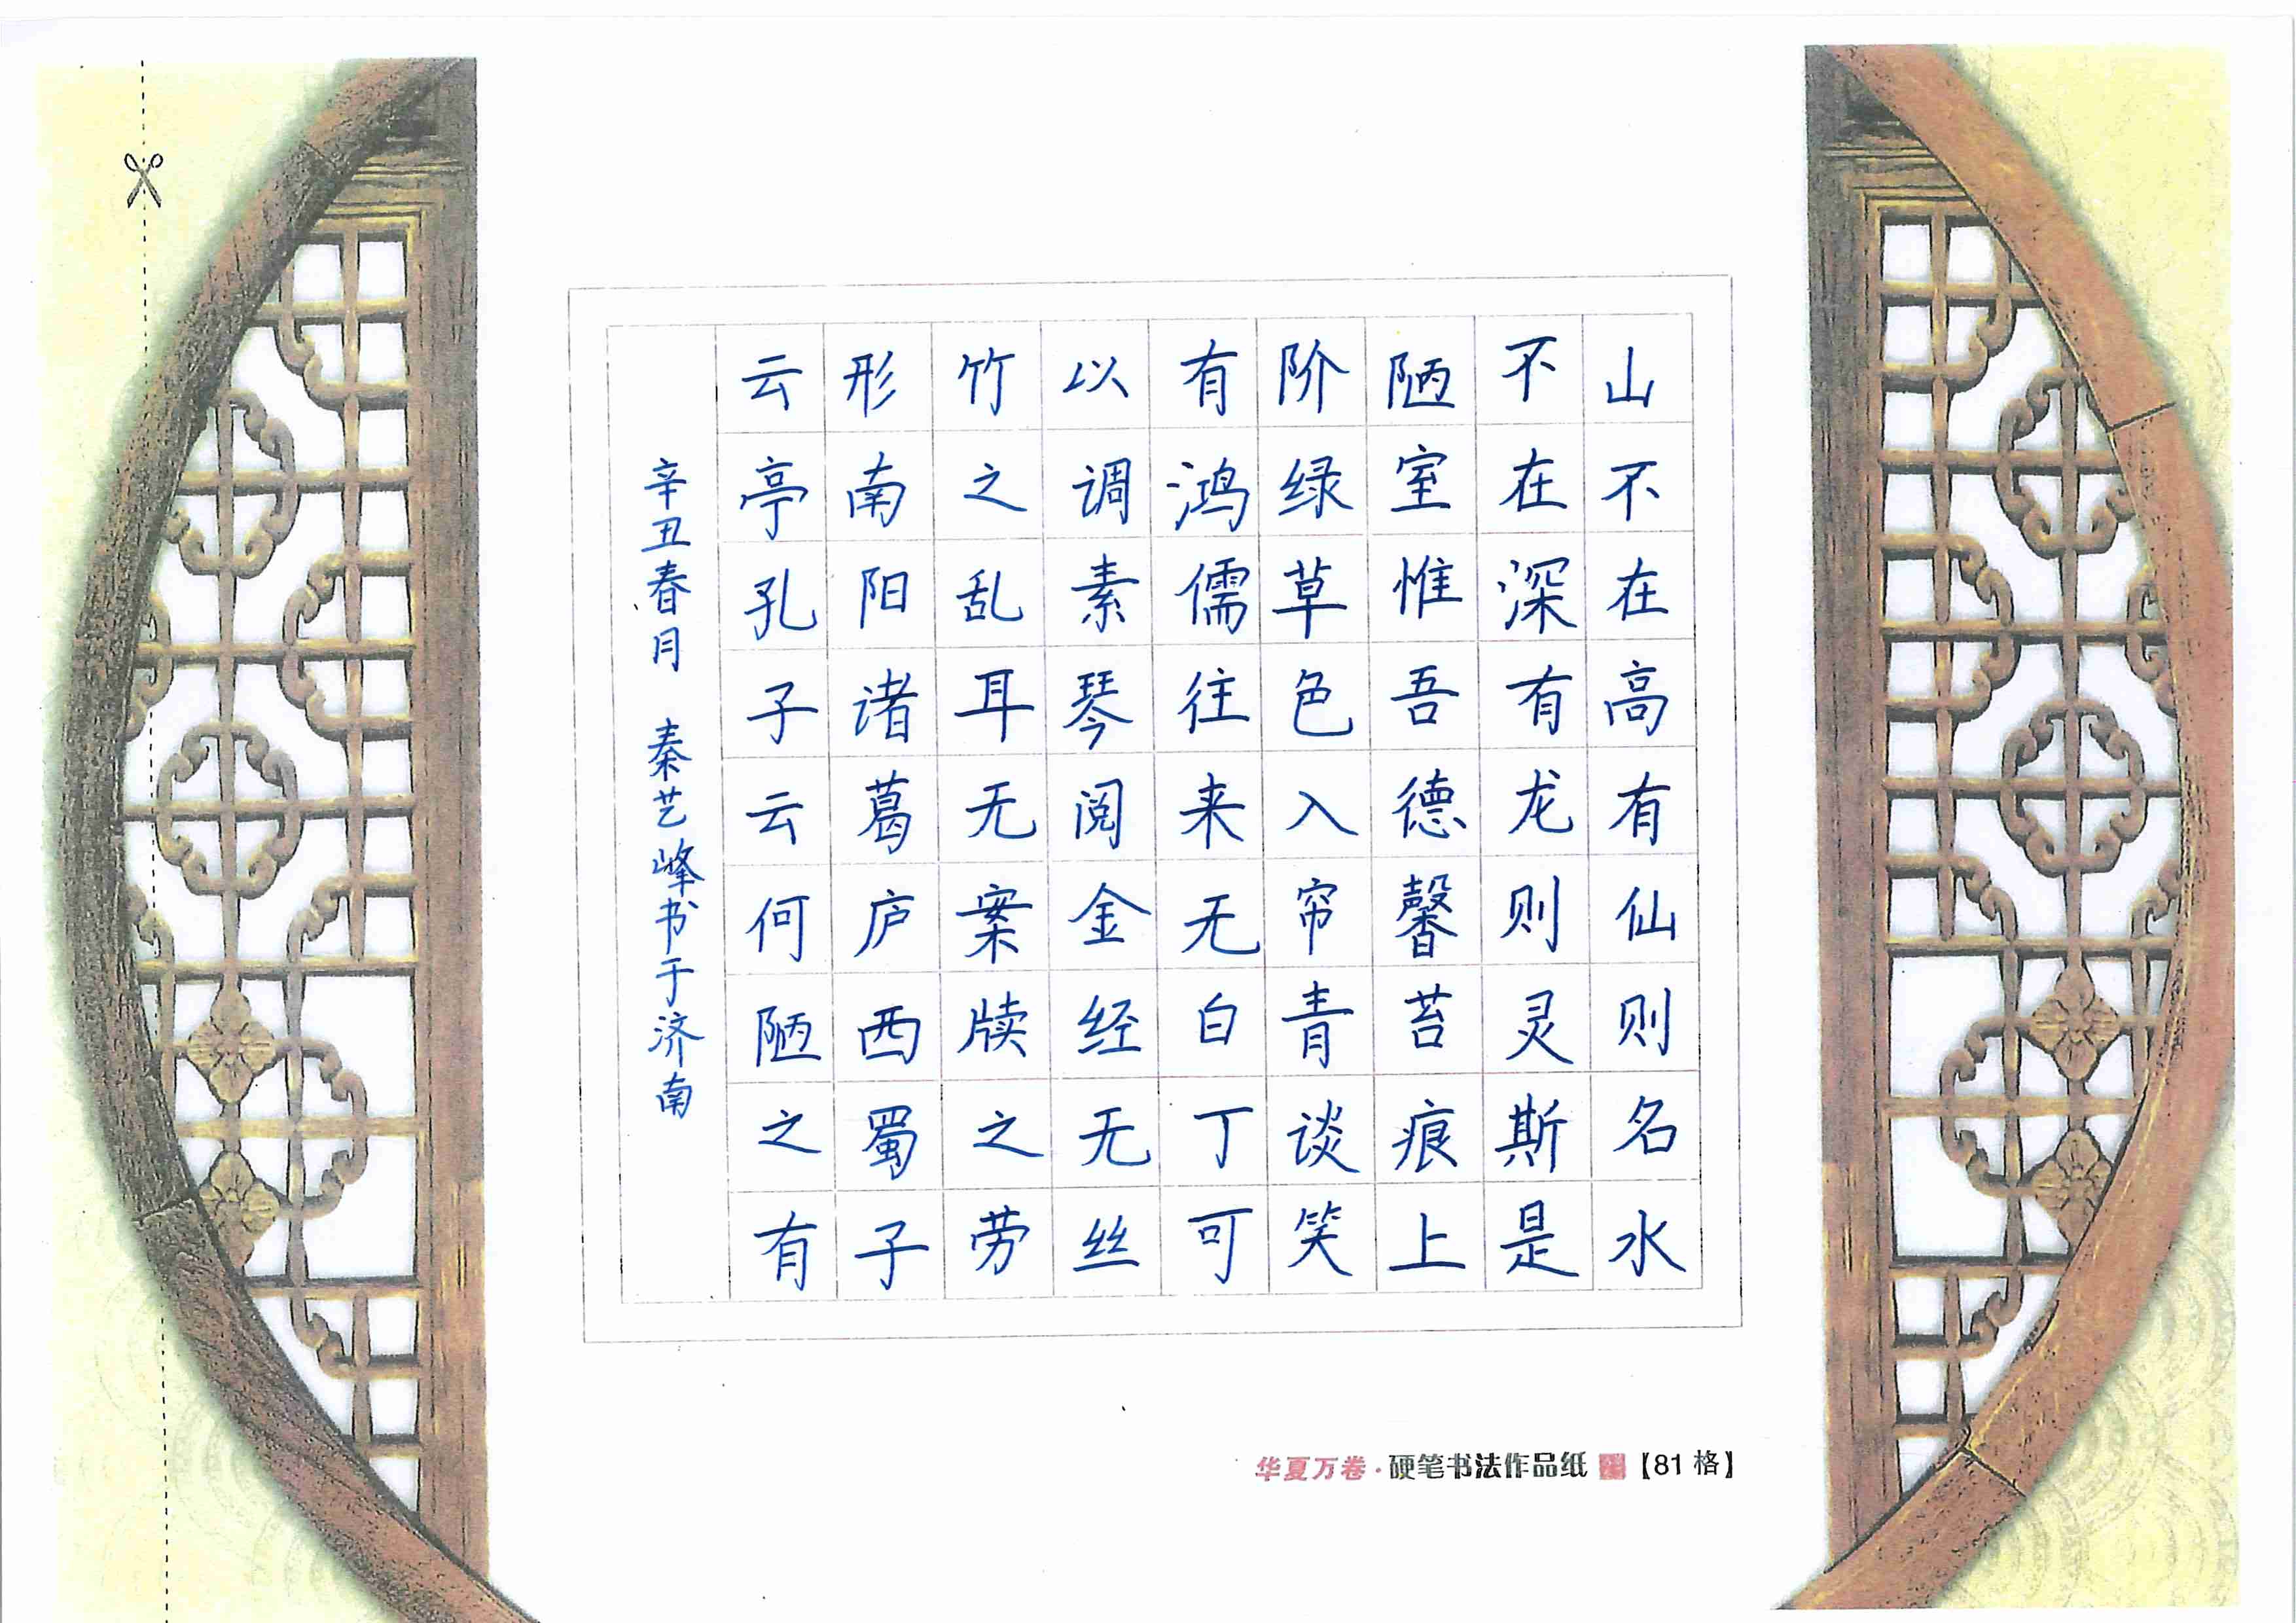 山不在高有仙则名水
不在深有龙则灵斯是
陋室惟吾德馨苔痕上
阶绿草色入帘青谈笑
有鸿儒往来无白丁可
以调素琴阅金经无丝
竹之乱耳无案牍之劳
形南阳诸葛庐西蜀子
云亭孔子云何陋之有
辛丑春月 秦艺峰书于济南
华夏万卷·硬笔书法作品纸【81格】